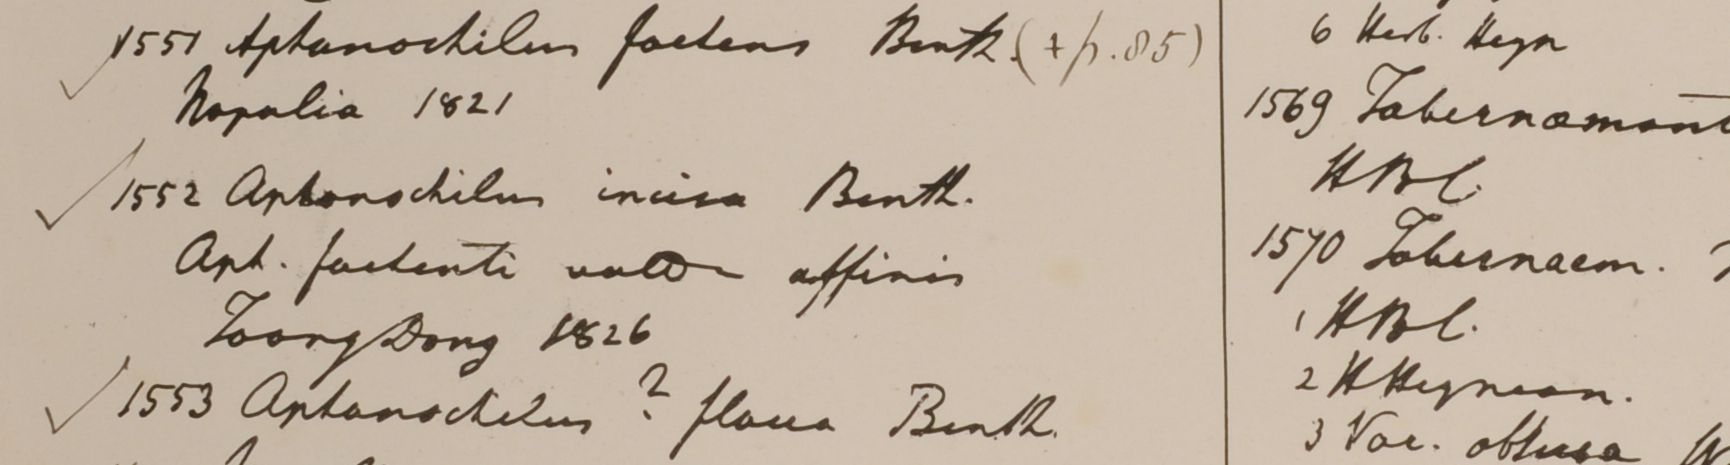 1551 Aphanochilus foetens Benth. (+ p. 85)
Napalia 1821
1552 Aphanochilus incisa Benth.
Aph. foetenti valde affinis
Toong Dong 1826
1553 Aphanochilus ? flava Benth.
6 Herb. Heyn
1569 Tabernaemont
HBC.
1570 Tabernaem.
1 HBC.
2 H Heynean.
3 Var. obtusa